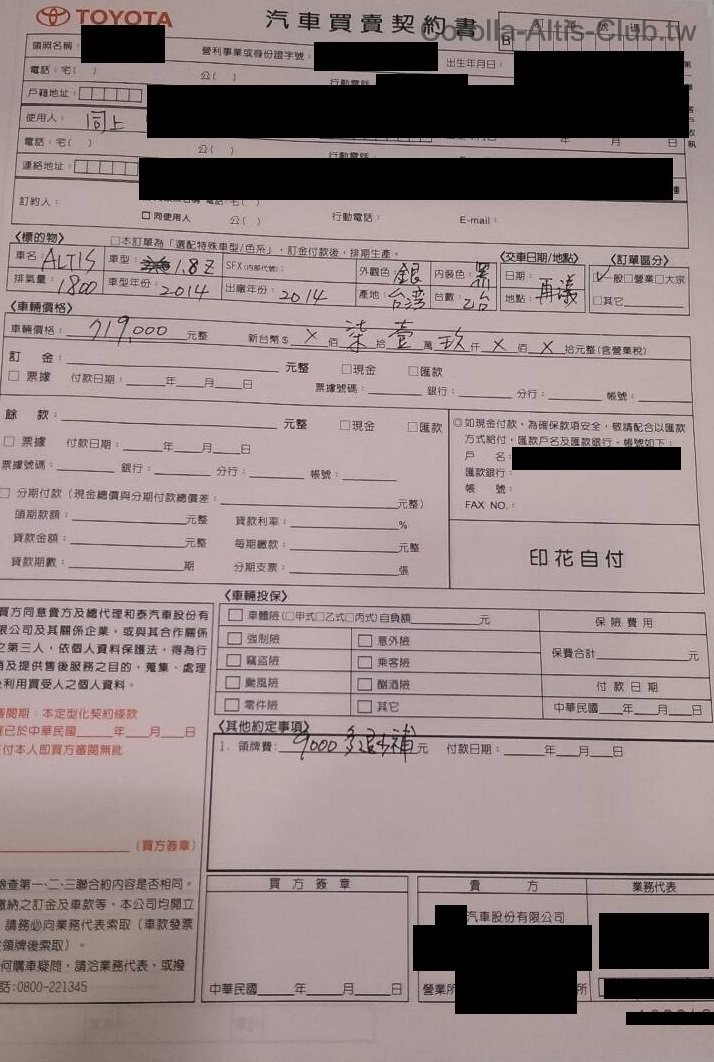 TOYOTA 汽車買賣契約書
Corolla-Altis-Club.tw
領照名稱： 營利事業或身份證字號： 出生年月日：
電話：宅( ) 公( ) 行動電話
戶籍地址：
使用人：同上 年 月 日
電話：宅( ) 公( ) 行動電話
連絡地址：
訂約人：
□ 同使用人 公( ) 行動電話： E-mail：
〈標的物〉 □本訂單為「選配特殊車型/色系」，訂金付款後，排期生產。 〈交車日期/地點〉 〈訂單區分〉
車名：ALTIS 車型：1.8Z SFX(內部代號)： 外觀色：銀 內裝色：黑 日期： ☑一般□營業□大宗
排氣量：1800 車型年份：2014 出廠年份：2014 產地：台湾 台數：乙台 地點：再議 □其它
〈車輛價格〉
車輛價格：719,000元整 新台幣$ X 佰 柒 拾 壹 萬 玖 仟 X 佰 X 拾元整(含營業稅)
訂 金： 元整 □現金 □匯款
□ 票據 付款日期： 年 月 日 票據號碼： 銀行： 分行： 帳號：
餘 款： 元整 □現金 □匯款
□ 票據 付款日期： 年 月 日
票據號碼： 銀行： 分行： 帳號：
◎如現金付款，為確保款項安全，敬請配合以匯款
方式給付，匯款戶名及匯款銀行、帳號如下：
戶 名：
匯款銀行：
帳 號：
FAX NO.：
□ 分期付款（現金總價與分期付款總價差： 元整）
頭期款額： 元整 貸款利率： %
貸款金額： 元整 每期繳款： 元整
貸款期數： 期 分期支票： 張
印花自付
買方同意貴方及總代理和泰汽車股份有
限公司及其關係企業，或與其合作關係
之第三人，依個人資料保護法，得為行
銷及提供售後服務之目的，蒐集、處理
及利用買受人之個人資料。
審閱期：本定型化契約條款
已於中華民國 年 月 日
交付本人即買方審閱無訛
（買方簽章）
〈車輛投保〉
□ 車體險(□甲式□乙式□丙式)自負額 元 保險費用
□ 強制險 □ 意外險 保費合計 元
□ 竊盜險 □ 乘客險
□ 颱風險 □ 酗酒險 付款日期
□ 零件險 □ 其它 中華民國 年 月 日
〈其他約定事項〉
1. 領牌費：9000多退少補元 付款日期： 年 月 日
檢查第一、二、三聯合約內容是否相同。
繳納之訂金及車款等，本公司均開立
請務必向業務代表索取（車款發票
領牌後索取）。
何購車疑問，請洽業務代表，或撥
話：0800-221345
買方簽章
中華民國 年 月 日
賣方 業務代表
汽車股份有限公司
營業所 所